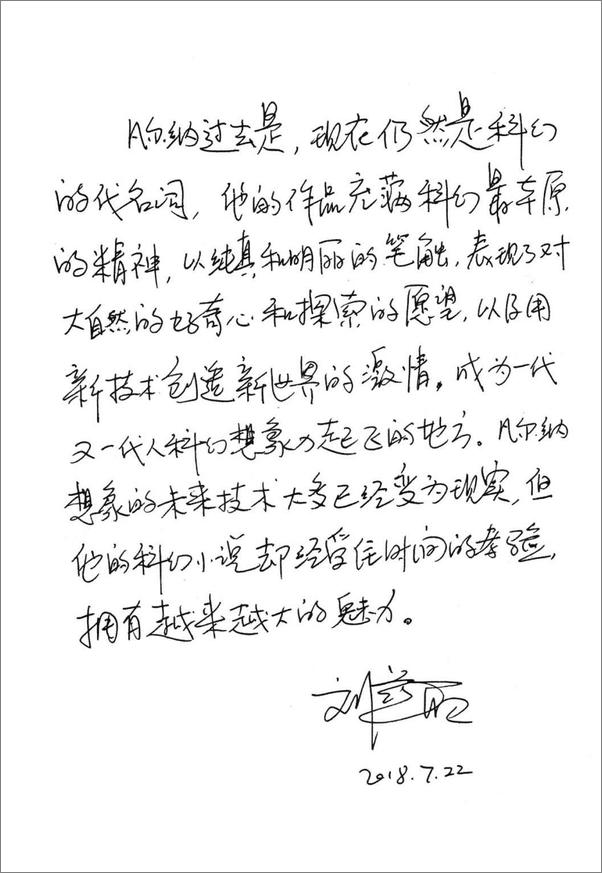 凡尔纳过去是，现在仍然是科幻
的代名词，他的作品充满科幻最本原
的精神，以纯真和明丽的笔触，表现了对
大自然的好奇心和探索的愿望，以及用
新技术创造新世界的激情。成为一代
又一代人科幻想象力起飞的地方。凡尔纳
想象的未来技术大多已经变为现实，但
他的科幻小说却经受住时间的考验，
拥有越来越大的魅力。
刘慈欣
2018.7.22